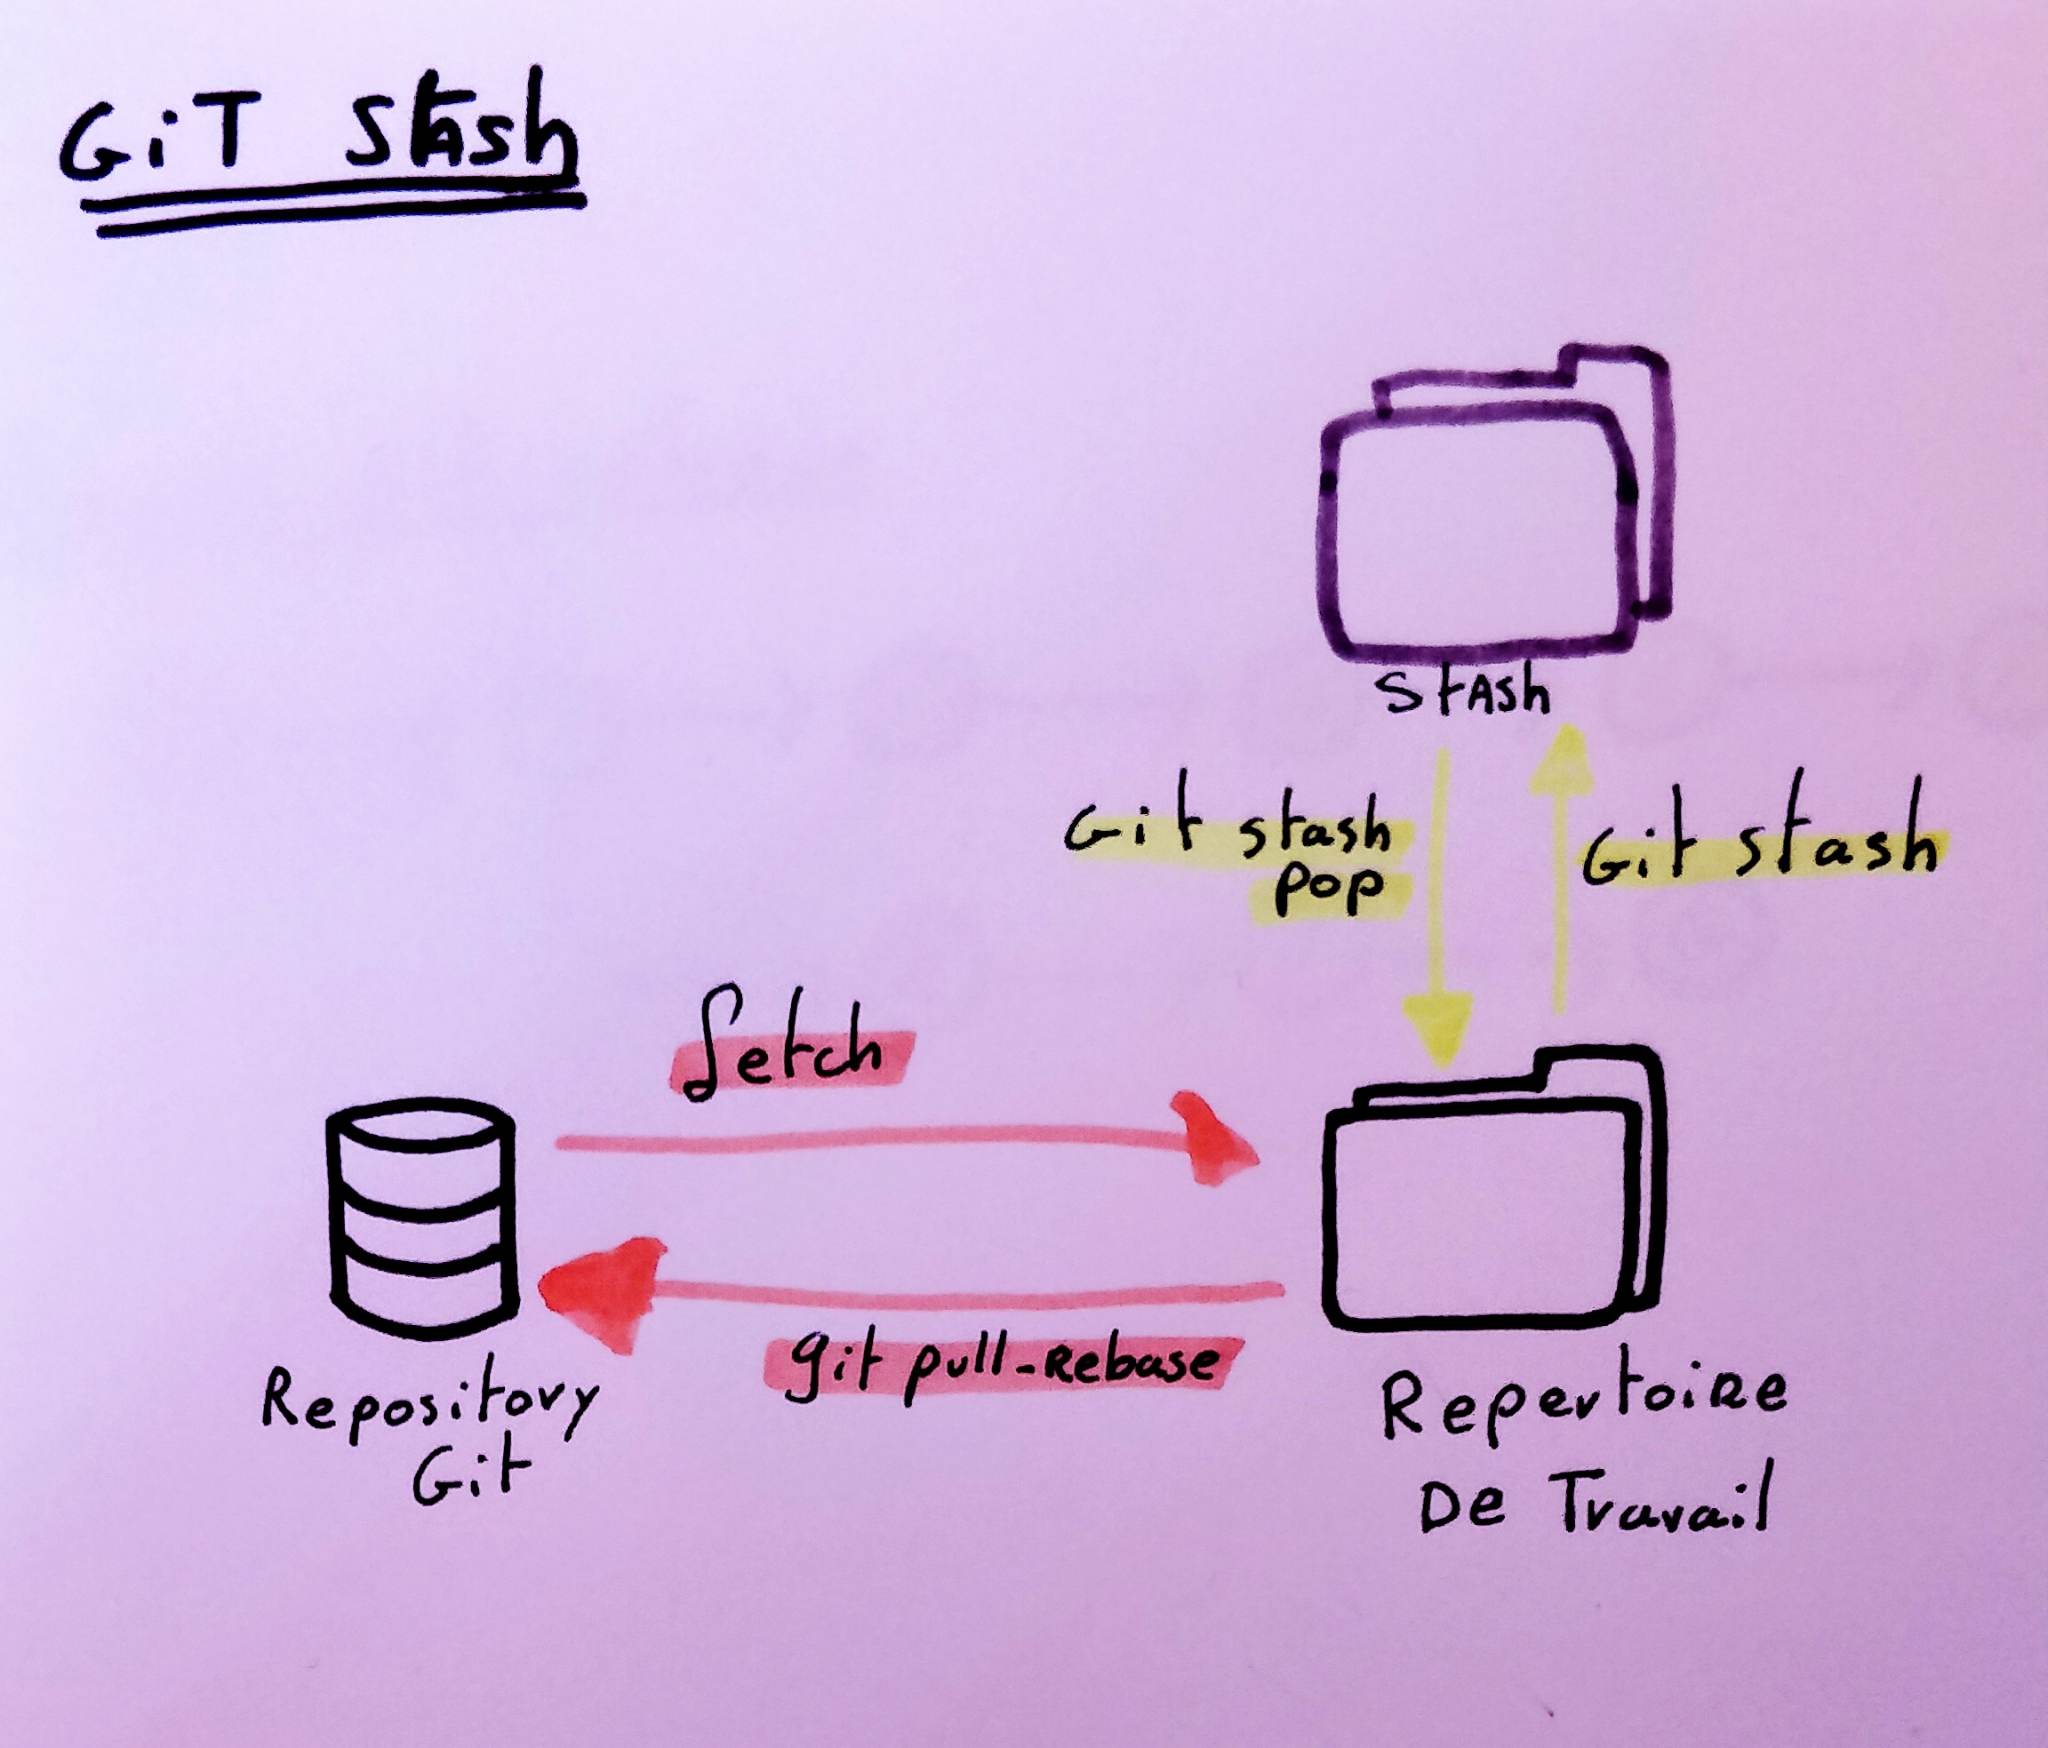 GiT Stash
Stash
Git stash
pop
Git stash
fetch
git pull-Rebase
Repository
Git
Repertoire
De Travail